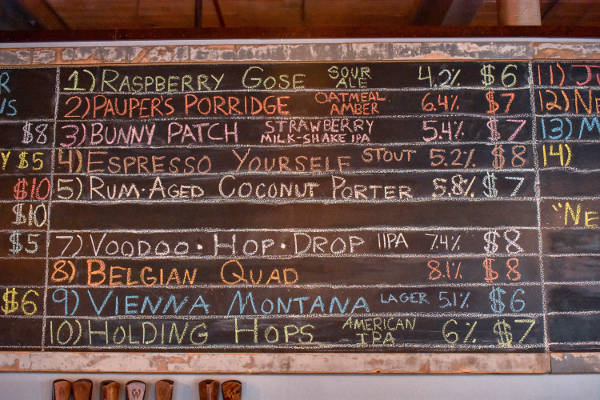 1) RASPBERRY GOSE SOUR ALE 4.2% $6
2) PAUPER'S PORRIDGE OATMEAL AMBER 6.4% $7
3) BUNNY PATCH STRAWBERRY MILK-SHAKE IPA 5.4% $7
4) ESPRESSO YOURSELF STOUT 5.2% $8
5) RUM-AGED COCONUT PORTER 5.8% $7
7) VOODOO·HOP·DROP IIPA 7.4% $8
8) BELGIAN QUAD 8.1% $8
9) VIENNA MONTANA LAGER 5.1% $6
10) HOLDING HOPS AMERICAN IPA 6% $7
$8
$5
$10
$10
$5
$6
11)
12)
13)
14)